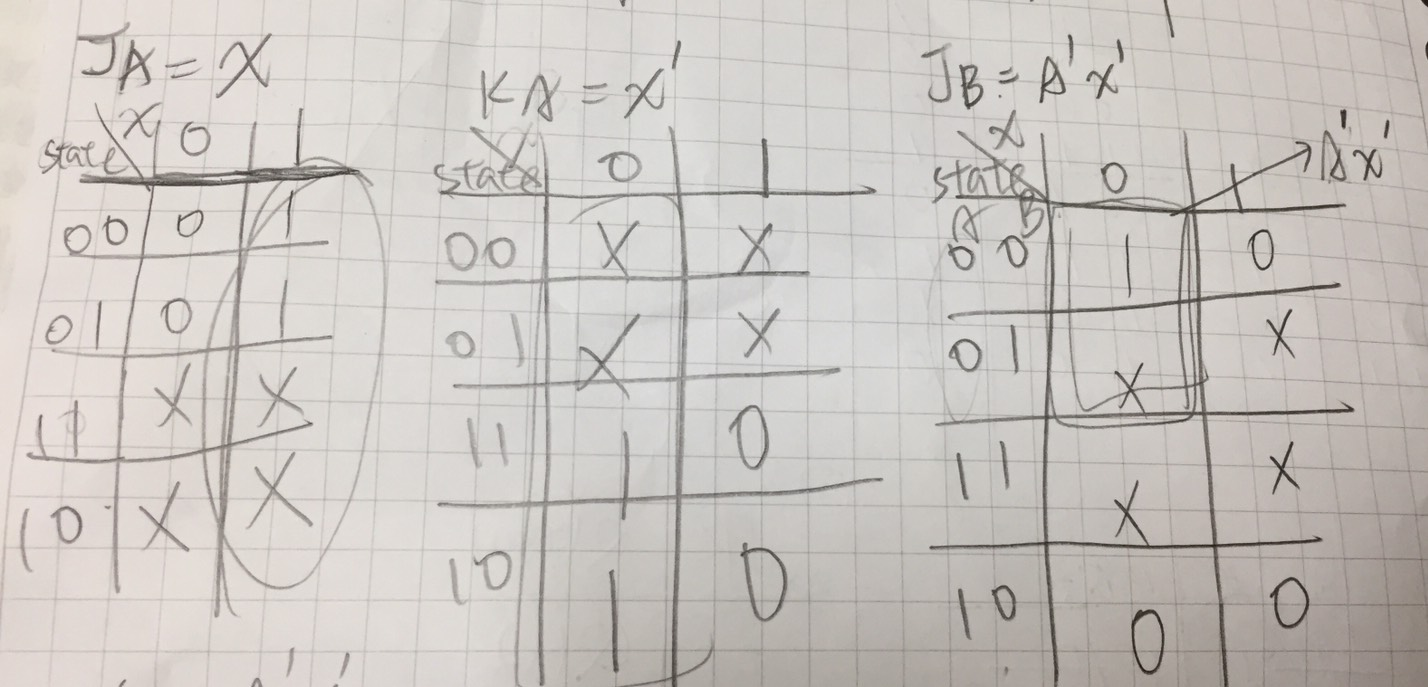 JA = X
state X 0 1
00 0 1
01 0 1
11 X X
10 X X
KA = X'
state 0 1
00 X X
01 X X
11 1 0
10 1 0
JB = A'X'
state X 0 1 A'X'
A B
00 1 0
01 X X
11 X X
10 0 0